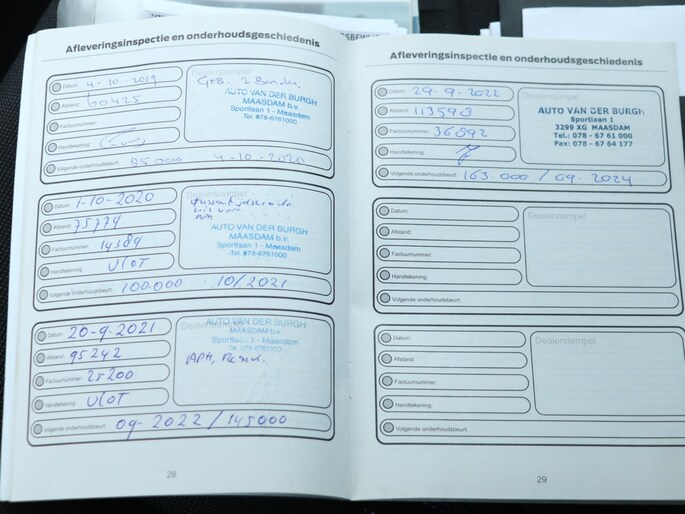 Afleveringsinspectie en onderhoudsgeschiedenis
Datum: 4-10-2019
Afstand: 60425
Factuurnummer:
Handtekening:
Volgende onderhoudsbeurt: 85000 4-10-2020
Dealerstempel
AUTO VAN DER BURGH
MAASDAM b.v.
Sportlaan 1 - Maasdam
Tel. 078-6761000
Datum: 1-10-2020
Afstand: 75779
Factuurnummer: 14389
Handtekening: Vlot
Volgende onderhoudsbeurt: 100.000 10/2021
Dealerstempel
AUTO VAN DER BURGH
MAASDAM b.v.
Sportlaan 1 - Maasdam
Tel. 078-6761000
Datum: 20-9-2021
Afstand: 95242
Factuurnummer: 25200
Handtekening: Vlot
Volgende onderhoudsbeurt: 09-2022 / 145000
Dealerstempel
AUTO VAN DER BURGH
MAASDAM b.v.
Sportlaan 1 - Maasdam
Tel. 078-6761000
APK,
28
Afleveringsinspectie en onderhoudsgeschiedenis
Datum: 29-9-2022
Afstand: 113598
Factuurnummer: 36892
Handtekening:
Volgende onderhoudsbeurt: 163.000 / 09-2024
Dealerstempel
AUTO VAN DER BURGH
Sportlaan 1
3299 XG MAASDAM
Tel.: 078 - 67 61 000
Fax: 078 - 67 64 177
Datum:
Afstand:
Factuurnummer:
Handtekening:
Volgende onderhoudsbeurt:
Dealerstempel
Datum:
Afstand:
Factuurnummer:
Handtekening:
Volgende onderhoudsbeurt:
Dealerstempel
29